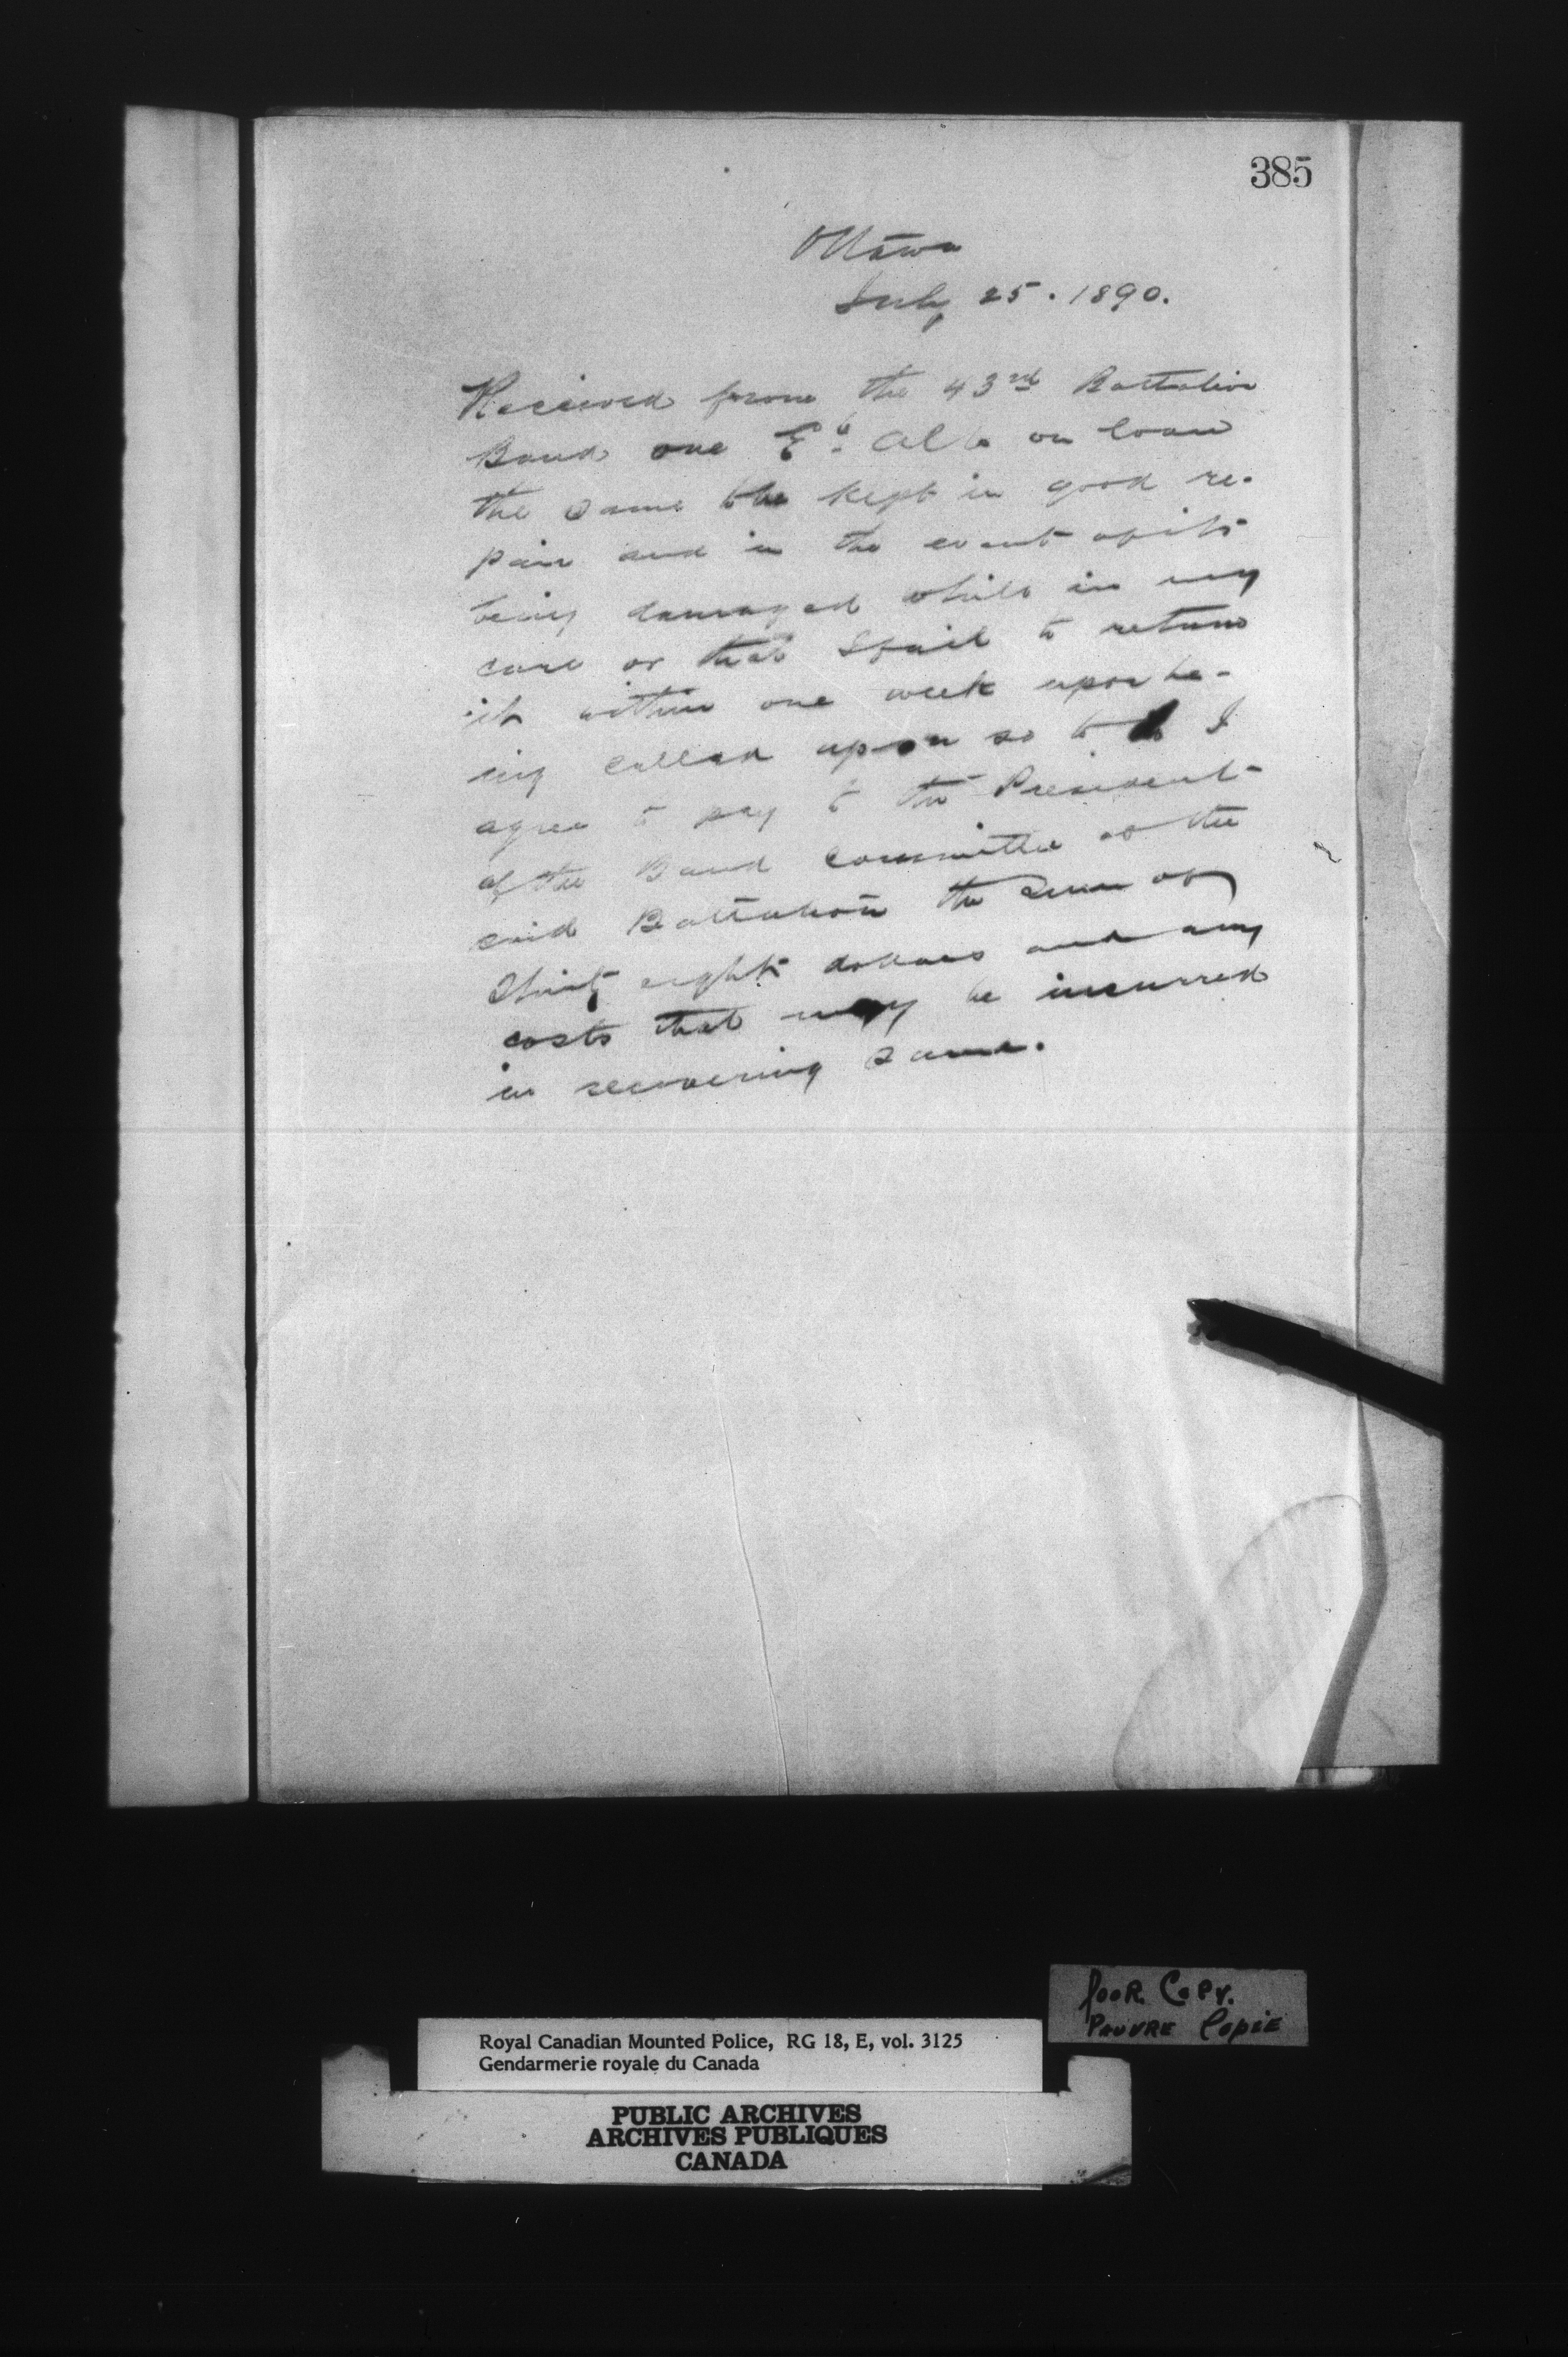 385
Ottawa
July 25. 1890.
Received from the 43rd Battalion
Band one Eb Alto on loan
the same to be kept in good re-
pair and in the event of its
being damaged while in my
care or that I fail to return
it within one week upon be-
ing called upon so to do I
agree to pay to the President
of the Band Committee of the
said Battalion the sum of
thirty eight dollars and any
costs that may be incurred
in recovering same.
Poor Copy.
Pauvre Copie
Royal Canadian Mounted Police, RG 18, E, vol. 3125
Gendarmerie royale du Canada
PUBLIC ARCHIVES
ARCHIVES PUBLIQUES
CANADA